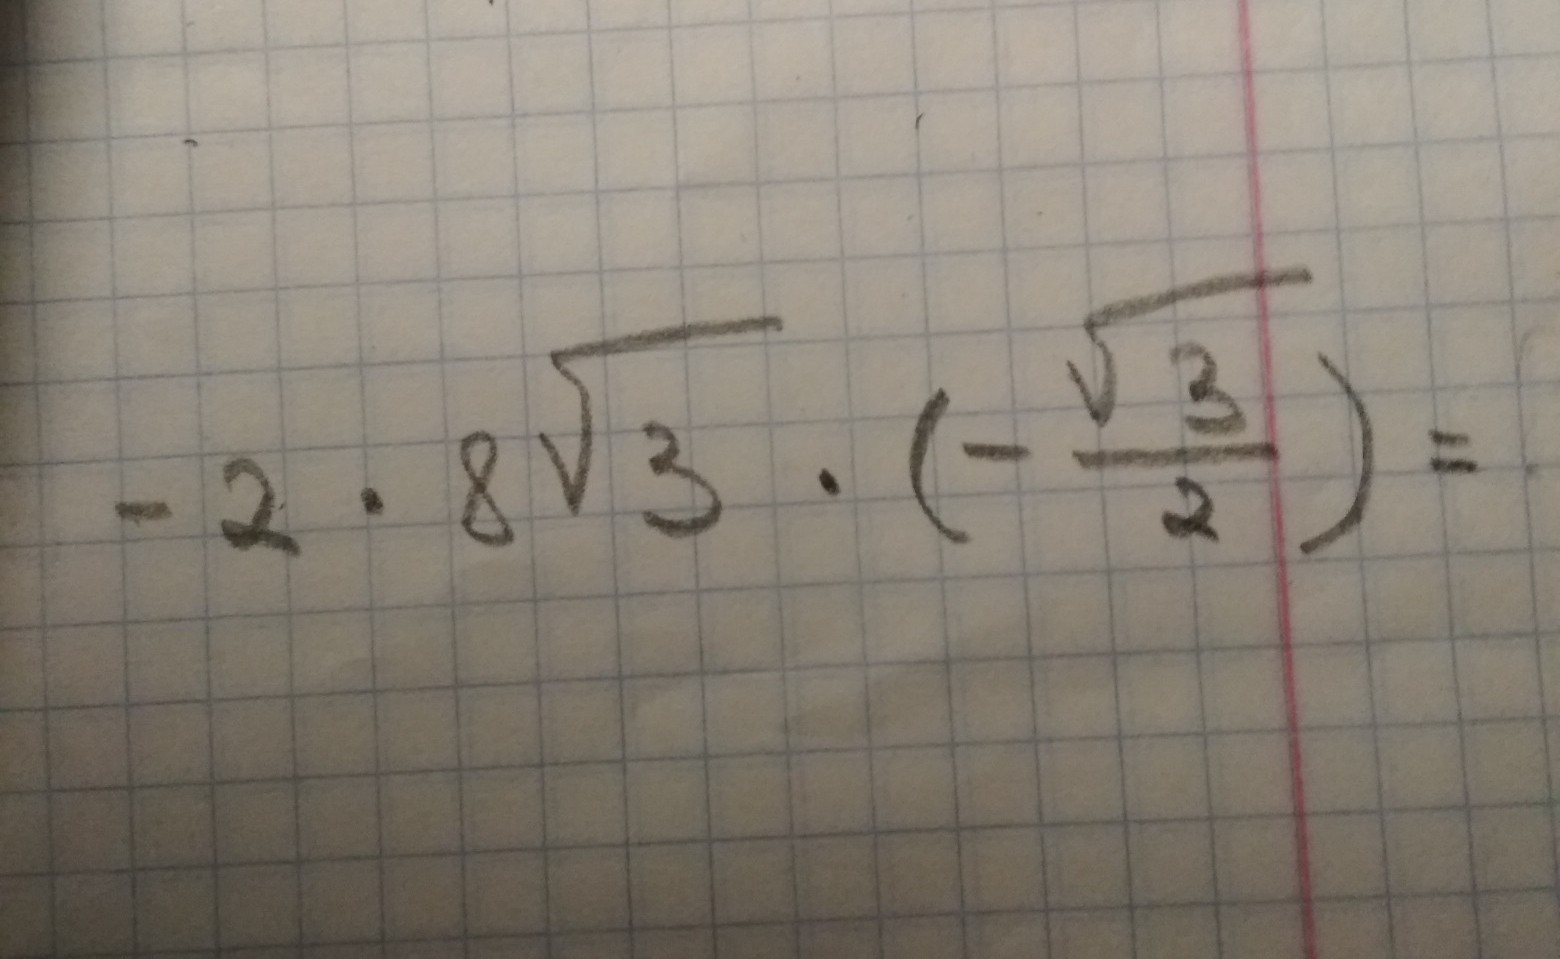 -2 · 8√3 · (-√3/2) =